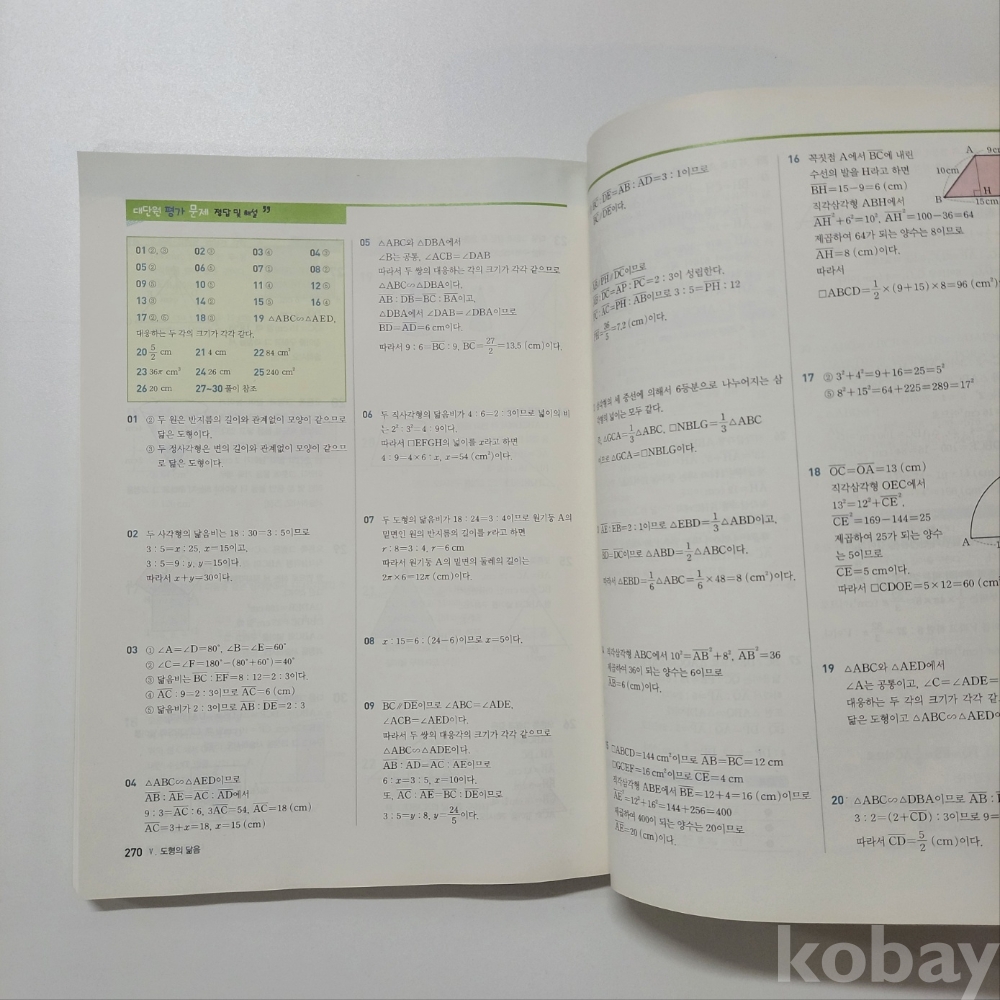 대단원 평가 문제 정답 및 해설
01 ②, ③ 02 03 ④ 04
05 ② 06 07 08
09 10 11 ④ 12
13 14 15 16 ④
17 ②, ⑤ 18 19 △ABC∽△AED,
대응하는 두 각의 크기가 각각 같다.
20 5/2 cm 21 4 cm 22 84 cm²
23 36π cm³ 24 26 cm 25 240 cm²
26 20 cm 27~30 풀이 참조
01 ② 두 원은 반지름의 길이와 관계없이 모양이 같으므로
닮은 도형이다.
③ 두 정사각형은 변의 길이와 관계없이 모양이 같으므
로 닮은 도형이다.
02 두 사각형의 닮음비는 18 : 30=3 : 5이므로
3 : 5=x : 25, x=15이고,
3 : 5=9 : y, y=15이다.
따라서 x+y=30이다.
03 ① ∠A=∠D=80°, ∠B=∠E=60°
② ∠C=∠F=180°-(80°+60°)=40°
③ 닮음비는 BC : EF=8 : 12=2 : 3이다.
④ AC : 9=2 : 3이므로 AC=6 (cm)
⑤ 닮음비가 2 : 3이므로 AB : DE=2 : 3
04 △ABC∽△AED이므로
AB : AE=AC : AD에서
9 : 3=AC : 6, 3AC=54, AC=18 (cm)
AC=3+x=18, x=15 (cm)
270 Ⅴ. 도형의 닮음
05 △ABC와 △DBA에서
∠B는 공통, ∠ACB=∠DAB
따라서 두 쌍의 대응하는 각의 크기가 각각 같으므로
△ABC∽△DBA이다.
AB : DB=BC : BA이고,
△DBA에서 ∠DAB=∠DBA이므로
BD=AD=6 cm이다.
따라서 9 : 6=BC : 9, BC=27/2=13.5 (cm)이다.
06 두 직사각형의 닮음비가 4 : 6=2 : 3이므로 넓이의 비
는 2² : 3²=4 : 9이다.
따라서 □EFGH의 넓이를 x라고 하면
4 : 9=4×6 : x, x=54 (cm²)이다.
07 두 도형의 닮음비가 18 : 24=3 : 4이므로 원기둥 A의
밑면인 원의 반지름의 길이를 r라고 하면
r : 8=3 : 4, r=6 cm
따라서 원기둥 A의 밑면의 둘레의 길이는
2π×6=12π (cm)이다.
08 x : 15=6 : (24-6)이므로 x=5이다.
09 BC∥DE이므로 ∠ABC=∠ADE,
∠ACB=∠AED이다.
따라서 두 쌍의 대응각의 크기가 각각 같으므로
△ABC∽△ADE이다.
AB : AD=AC : AE이므로
6 : x=3 : 5, x=10이다.
또, AC : AE=BC : DE이므로
3 : 5=y : 8, y=24/5이다.
: DE=AB : AD=3 : 1이므로
DE이다.
PH∥DC이므로
DC=AP : PC=2 : 3이 성립한다.
AC=PH : AB이므로 3 : 5=PH : 12
=36/5=7.2 (cm)이다.
삼각형의 세 중선에 의해서 6등분으로 나누어지는 삼
각형의 넓이는 모두 같다.
△GCA=1/3△ABC, □NBLG=1/3△ABC
이므로 △GCA=□NBLG이다.
AE : EB=2 : 1이므로 △EBD=1/3△ABD이고,
BD=DC이므로 △ABD=1/2△ABC이다.
따라서 △EBD=1/6△ABC=1/6×48=8 (cm²)이다.
직각삼각형 ABC에서 10²=AB²+8², AB²=36
제곱하여 36이 되는 양수는 6이므로
AB=6 (cm)이다.
□ABCD=144 cm²이므로 AB=BC=12 cm
□GCEF=16 cm²이므로 CE=4 cm
직각삼각형 ABE에서 BE=12+4=16 (cm)이므로
AE²=12²+16²=144+256=400
제곱하여 400이 되는 양수는 20이므로
AE=20 (cm)이다.
16 꼭짓점 A에서 BC에 내린
수선의 발을 H라고 하면
BH=15-9=6 (cm)
직각삼각형 ABH에서
AH²+6²=10², AH²=100-36=64
제곱하여 64가 되는 양수는 8이므로
AH=8 (cm)이다.
따라서
□ABCD=1/2×(9+15)×8=96 (cm²)
A 9cm
10cm
H
B 15cm
17 ② 3²+4²=9+16=25=5²
⑤ 8²+15²=64+225=289=17²
18 OC=OA=13 (cm)
직각삼각형 OEC에서
13²=12²+CE²,
CE²=169-144=25
제곱하여 25가 되는 양수
는 5이므로
CE=5 cm이다.
따라서 □CDOE=5×12=60 (cm
A
19 △ABC와 △AED에서
∠A는 공통이고, ∠C=∠ADE=
대응하는 두 각의 크기가 각각 같
닮은 도형이고 △ABC∽△AED
20 △ABC∽△DBA이므로 AB :
3 : 2=(2+CD) : 3이므로 9=
따라서 CD=5/2 (cm)이다.
kobay